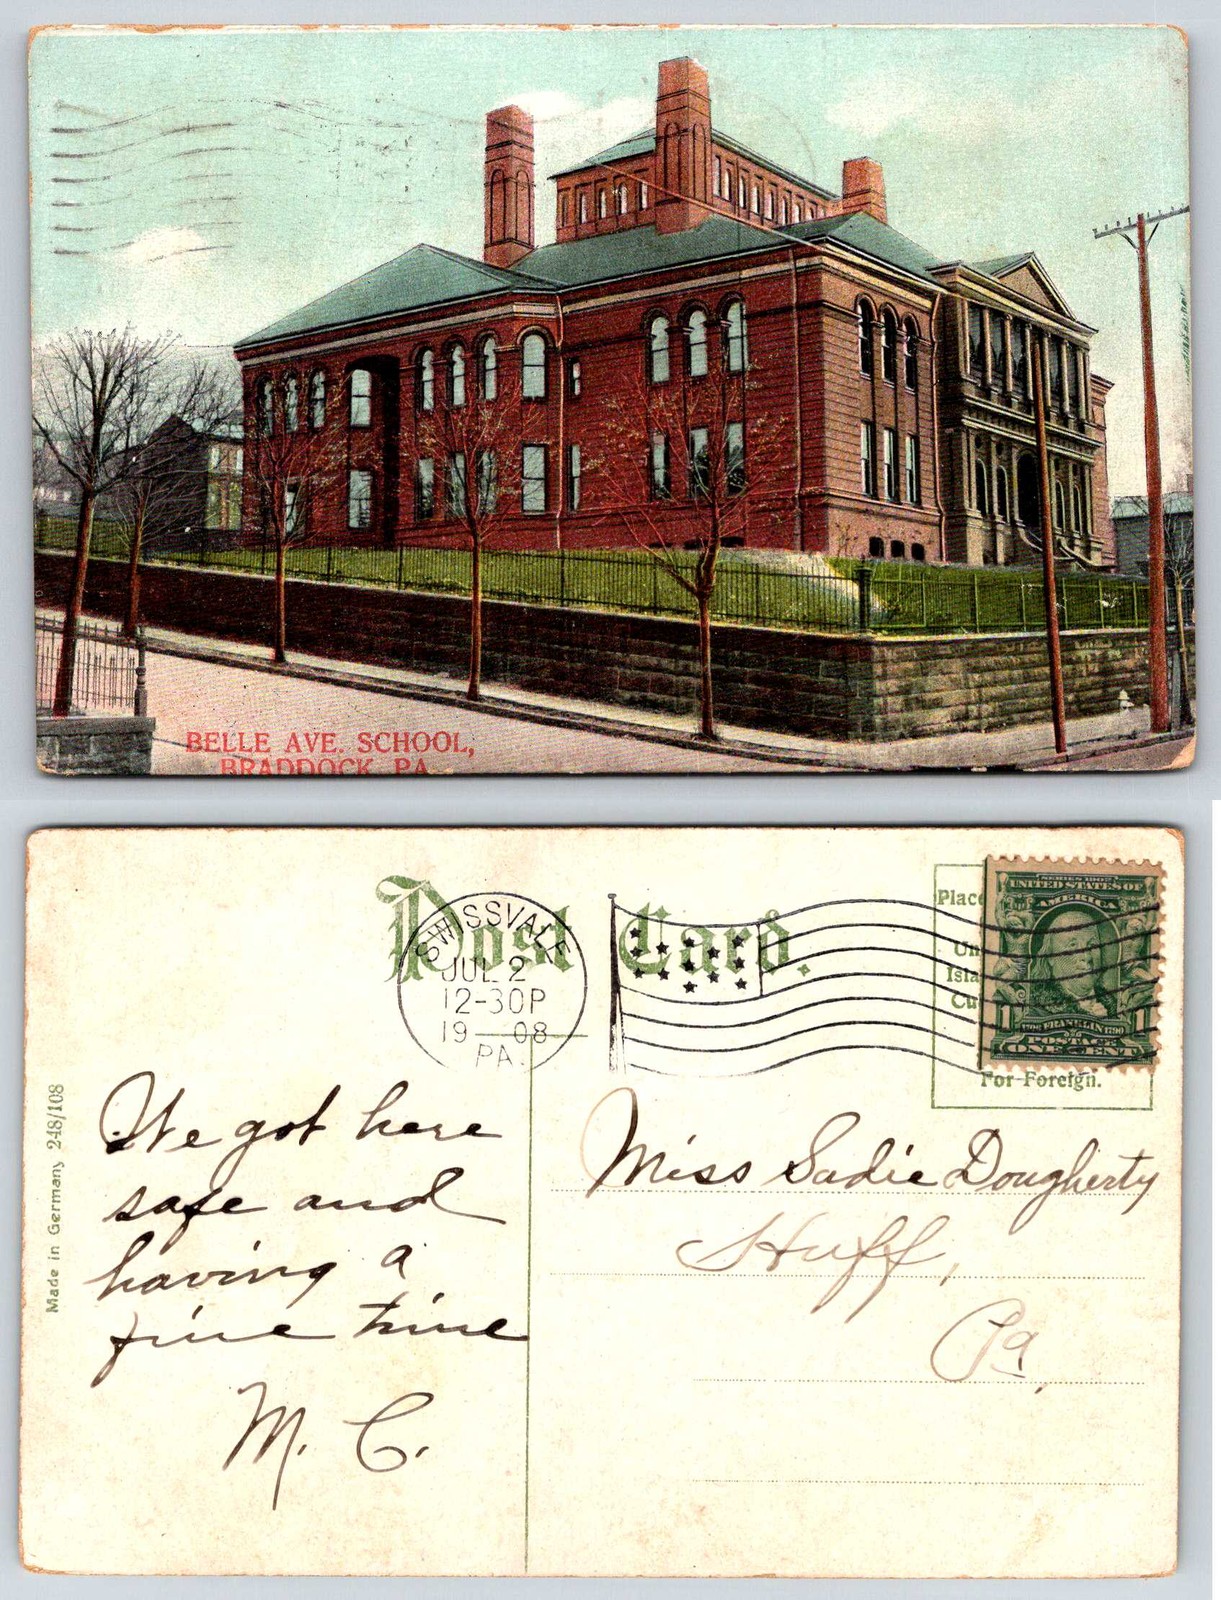 BELLE AVE. SCHOOL,
BRADDOCK, PA.
Post Card.
SWISSVALE
JUL 2
12-30P
19 08
PA.
Place
Un
Isla
Cu
For Foreign.
SERIES 1902
UNITED STATES OF
AMERICA
1 1
1706 FRANKLIN 1790
POSTAGE
ONE CENT
Made in Germany 248/108
We got here
safe and
having a
fine time
M. C.
Miss Sadie Dougherty
Huff,
Pa,